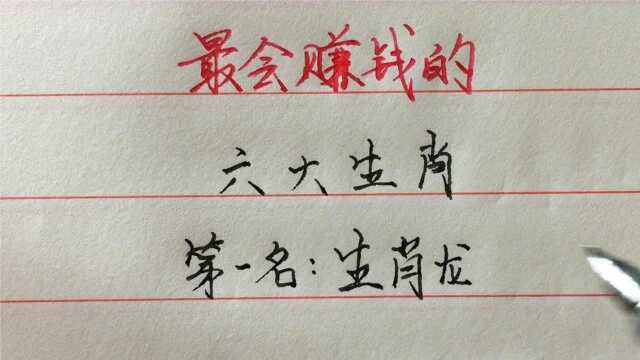 最会赚钱的
六大生肖
第一名:生肖龙